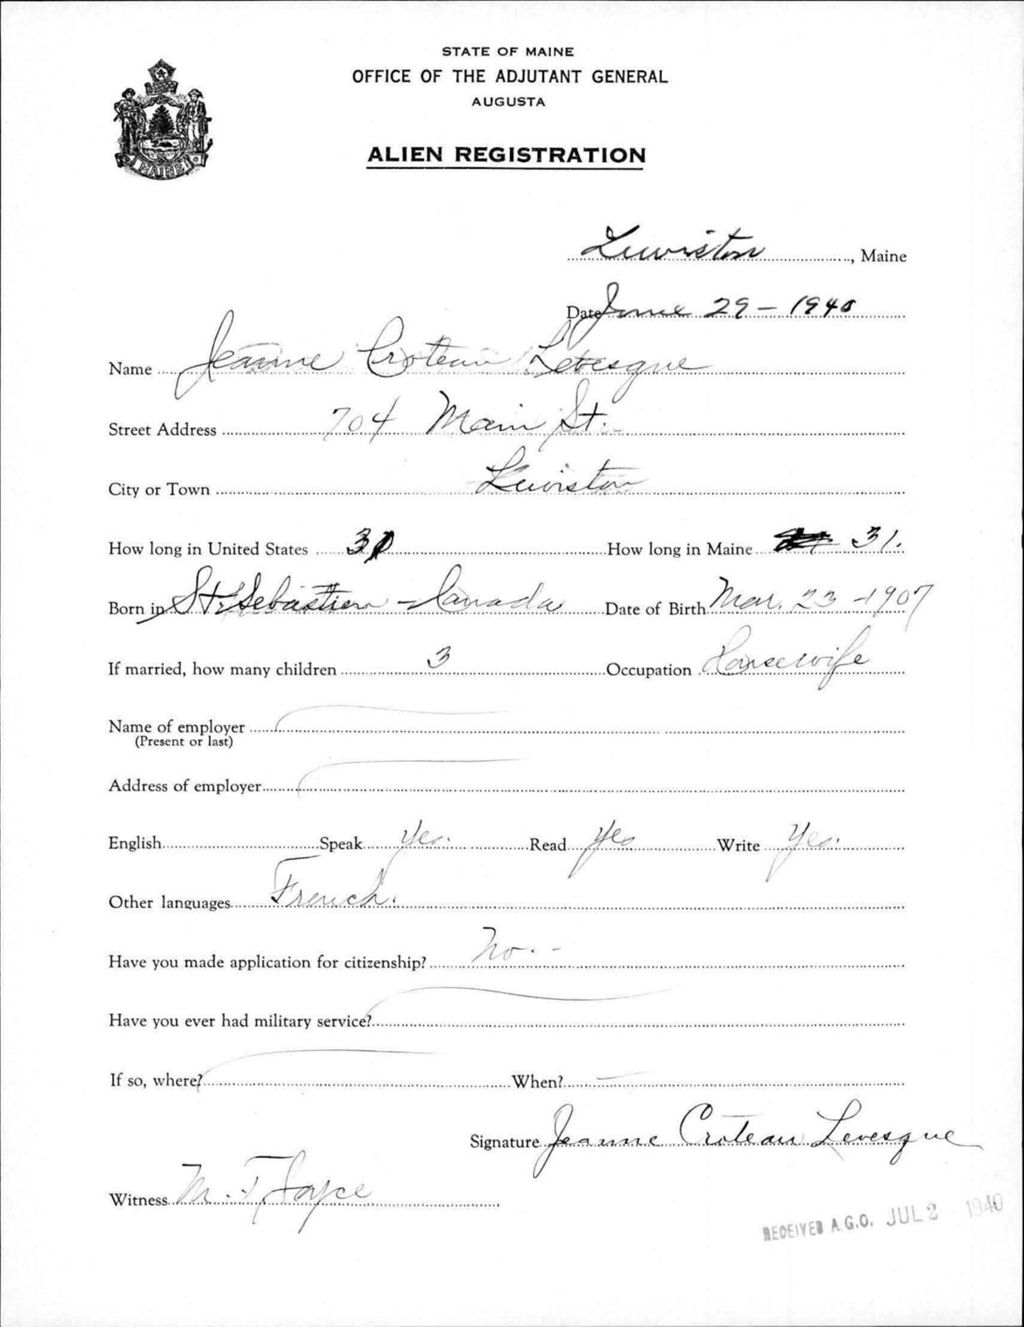 STATE OF MAINE
OFFICE OF THE ADJUTANT GENERAL
AUGUSTA
ALIEN REGISTRATION
MAINE
Lewiston, Maine
Date June 29 - 1940
Name Jeanne Croteau Levesque
Street Address 704 Main St.
City or Town Lewiston
How long in United States 31 How long in Maine 31.
Born in St. Sebastien - Canada Date of Birth Mar. 23 - 1907
If married, how many children 3 Occupation Housewife
Name of employer
(Present or last)
Address of employer
English Speak Yes. Read Yes Write Yes.
Other languages French.
Have you made application for citizenship? No. -
Have you ever had military service?
If so, where? When? —
Signature Jeanne Croteau Levesque
Witness M. T. Joyce
RECEIVED A.G.O. JUL 2 1940